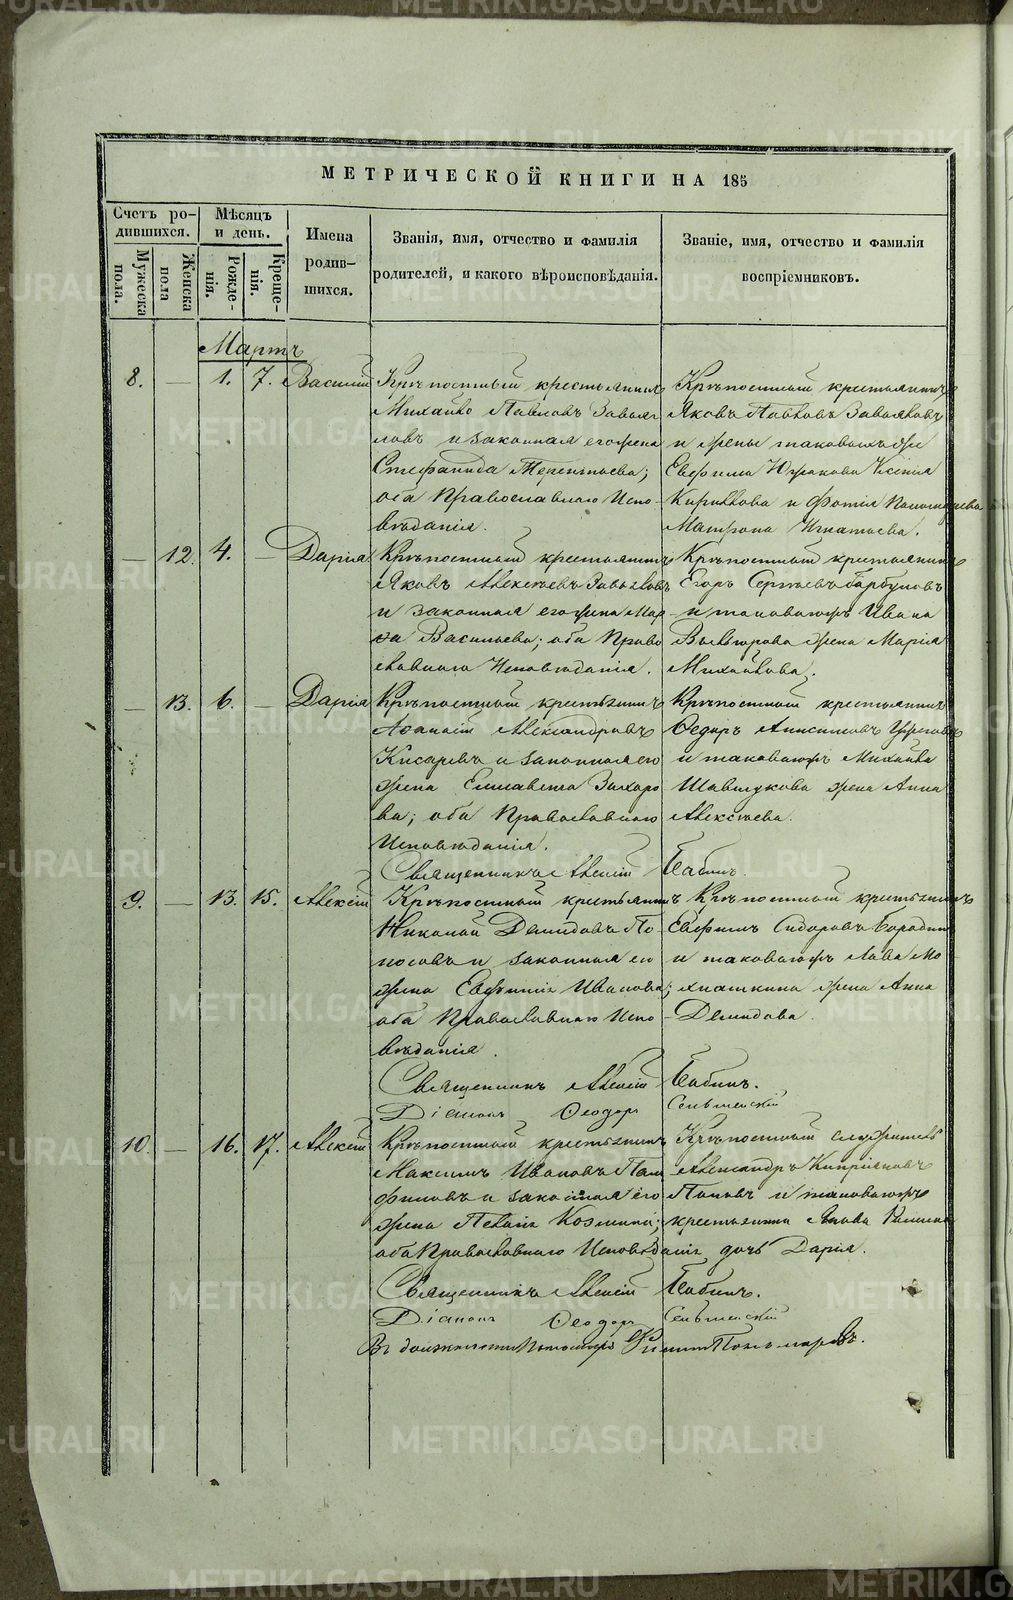 МЕТРИЧЕСКОЙ КНИГИ НА 185
Счетъ ро-
дившихся.
Мужеска
пола.
Женска
пола
Мѣсяцъ
и день.
Рожде-
нія.
Креще-
нія.
Имена
родив-
шихся.
Званія, имя, отчество и фамилія
родителей, и какого вѣроисповѣданія.
Званіе, имя, отчество и фамилія
воспріемниковъ.
Мартъ
8. — 1. 7. Василий
Крѣпостный крестьянинъ
Михайло Павловъ Завья-
ловъ и законная его жена
Стефанида Терентьева;
оба Православнаго Испо-
вѣданія.
Крѣпостный крестьянинъ
Яковъ Павловъ Завьяловъ
и жены таковыхъ же
Евфима Южакова Ксенія
Кирилова и Фотія Пономарева
Матрона Игнатьева.
— 12. 4. — Дарія
Крѣпостный крестьянинъ
Яковъ Алексѣевъ Завьяловъ
и законная его жена Мар-
ѳа Васильева; оба Право
славнаго Исповѣданія.
Крѣпостный крестьянинъ
Егоръ Сергѣевъ
и таковагожъ Ивана
жена Марія
Михайлова.
— 13. 6. — Дарія
Крѣпостный крестьянинъ
Аѳанасій Александровъ
Кисаревъ и законная его
жена Елисавета Захаро
ва; оба Православнаго
Исповѣданія.
Крѣпостный крестьянинъ
Ѳедоръ Анисимовъ
и таковагожъ Михайла
жена Анна
Алексѣева.
Священникъ Алексій Бабинъ.
9. — 13. 15. Алексій
Крѣпостный крестьянинъ
Николай Демидовъ По-
носовъ и законная его
жена Евфимія Иванова;
оба Православнаго Испо-
вѣданія.
Крѣпостный крестьянинъ
Евфимъ Сидоровъ Бородин
и таковагожъ Савы Мо
хнашкина жена Анна
Демидова.
Священникъ Алексій Бабинъ.
Діаконъ Ѳеодоръ
10. — 16. 17. Алексій
Крѣпостный крестьянинъ
Максимъ Ивановъ Пан
филовъ и законная его
жена Пелагія Козмина;
оба Православнаго Исповѣданія
Крѣпостный служитель
Александръ Кипріяновъ
Поповъ и таковагожъ
крестьянина Якова
дочь Дарія.
Священникъ Алексій Бабинъ.
Діаконъ Ѳеодоръ
Въ должности Пономаря Пономаревъ.
METRIKI.GASO-URAL.RU